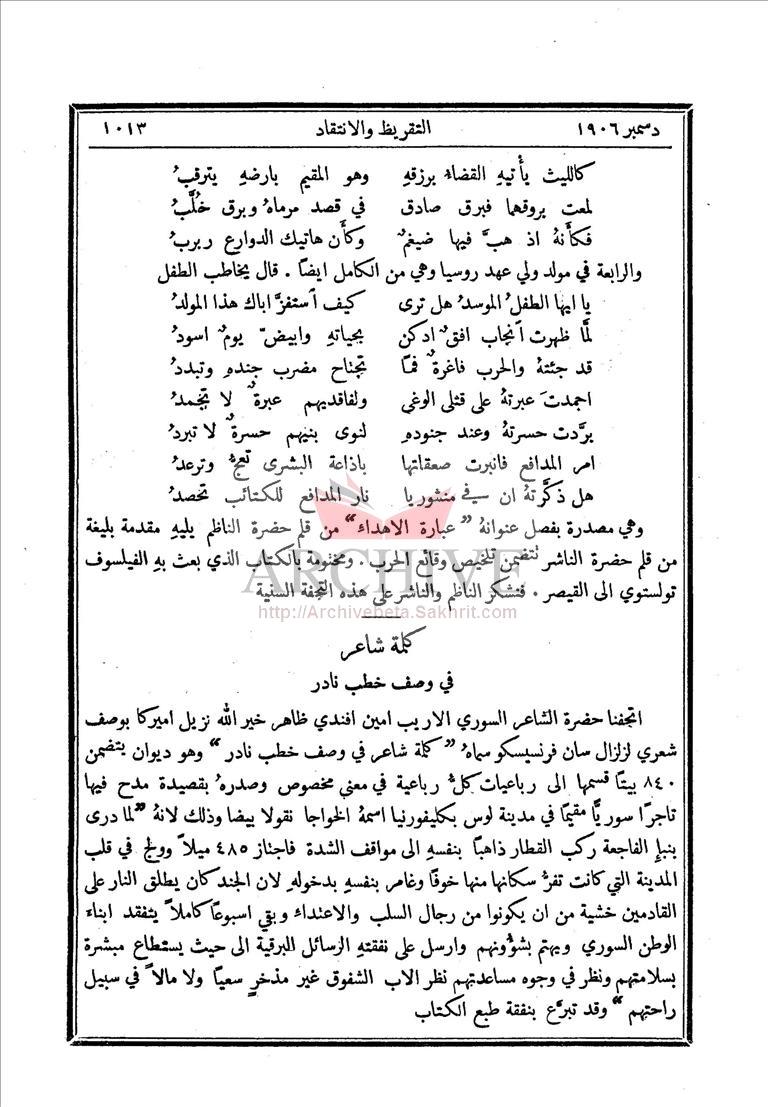 دسمبر ١٩٠٦ التقريظ والانتقاد ١٠١٣
كالليث يأتيهِ القضاءُ برزقهِ وهو المقيم بارضهِ يترقبُ
لمعت بروقها فبرق صادق في قصد مرماهُ وبرق خُلَّبُ
فكأنهُ اذ هبَّ فيها ضيغمٌ وكأن هاتيك الدوارع ربربُ
والرابعة في مولد ولي عهد روسيا وهي من الكامل ايضاً . قال يخاطب الطفل
يا ايها الطفلُ الموسدُ هل ترى كيف استفزَّ اباك هذا المولدُ
لمَّا ظهرت انجاب افقٌ ادكن بحياتهِ وابيضّ يومٌ اسودُ
قد جئتهُ والحرب فاغرةٌ فمًا تجتاح مضرب جندهِ وتبددُ
اجمدتَ عبرتهُ على قتلى الوغى ولفاقديهم عبرةٌ لا تجمدُ
برَّدت حسرتهُ وعند جنودهِ لنوى بنيهم حسرةٌ لا تبردُ
امر المدافع فانبرت صعقاتها باذاعة البشرى تعجُّ وترعدُ
هل ذكَّرتهُ ان في منشوريا نار المدافع للكتائب تحصدُ
وهي مصدرة بفصل عنوانهُ "عبارة الاهداء" من قلم حضرة الناظم يليهِ مقدمة بليغة
من قلم حضرة الناشر تتضمن تلخيص وقائع الحرب . ومختومة بالكتاب الذي بعث بهِ الفيلسوف
تولستوي الى القيصر . فنشكر الناظم والناشر على هذه التحفة السنية
ARCHIVE
http://Archivebeta.Sakhrit.com
كلمة شاعر
في وصف خطب نادر
اتحفنا حضرة الشاعر السوري الاريب امين افندي ظاهر خير الله نزيل اميركا بوصف
شعري لزلزال سان فرنسيسكو سماهُ "كلمة شاعر في وصف خطب نادر" وهو ديوان يتضمن
٨٤٠ بيتاً قسمها الى رباعيات كلُّ رباعية في معنى مخصوص وصدرهُ بقصيدة مدح فيها
تاجرًا سوريًّا مقيمًا في مدينة لوس بكليفورنيا اسمهُ الخواجا نقولا بيضا وذلك لانهُ "لما درى
بنبإِ الفاجعة ركب القطار ذاهباً بنفسهِ الى مواقف الشدة فاجتاز ٤٨٥ ميلاً وولج في قلب
المدينة التي كانت تفرُّ سكانها منها خوفاً وغامر بنفسهِ بدخولهِ لان الجند كان يطلق النار على
القادمين خشية من ان يكونوا من رجال السلب والاعتداء وبقي اسبوعاً كاملاً يتفقد ابناء
الوطن السوري ويهتم بشؤونهم وارسل على نفقتهِ الرسائل البرقية الى حيث يستطاع مبشرة
بسلامتهم ونظر في وجوه مساعدتهم نظر الاب الشفوق غير مذخرٍ سعياً ولا مالاً في سبيل
راحتهم" وقد تبرَّع بنفقة طبع الكتاب